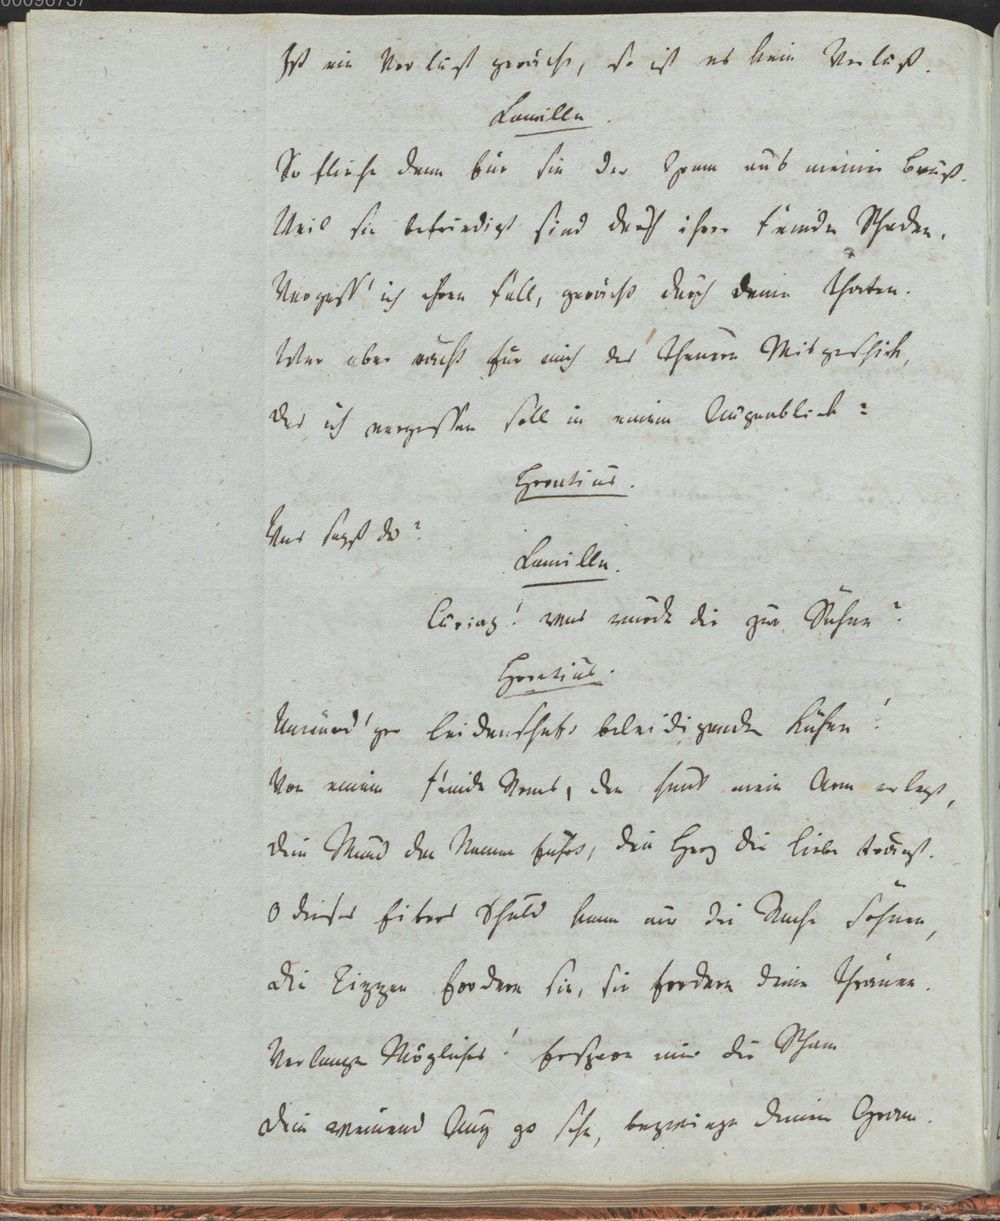 00096737
Ist ein Verlust gerächt, so ist es kein Verlust.
Camilla.
So fliehe denn für sie der Gram aus meiner Brust.
Weil sie befriedigt sind durch ihrer Feinde Schaden,
Vergess' ich ihren Fall, gerächt durch deine Thaten.
Wer aber rächt für mich des Theuren Misgeschick,
Das ich vergessen soll in einem Augenblick?
Horatius.
Was sagst du?
Camilla.
Curiaz! was wurde dir zur Sühne?
Horatius.
Unwürd'ger Leidenschaft beleidigende Kühne!
Von einem Feinde Roms, den heut mein Arm erlegt,
Dein Mund den Namen führt, dein Herz die Liebe trägt.
O dieses Fibers Schuld kann nur die Rache söhnen,
Die Lippen fordern sie, sie fordern deine Thränen.
Verlange Mögliches! Erspare mir die Scham
Dein weinend Aug zu sehn, bezwinge deinen Gram.